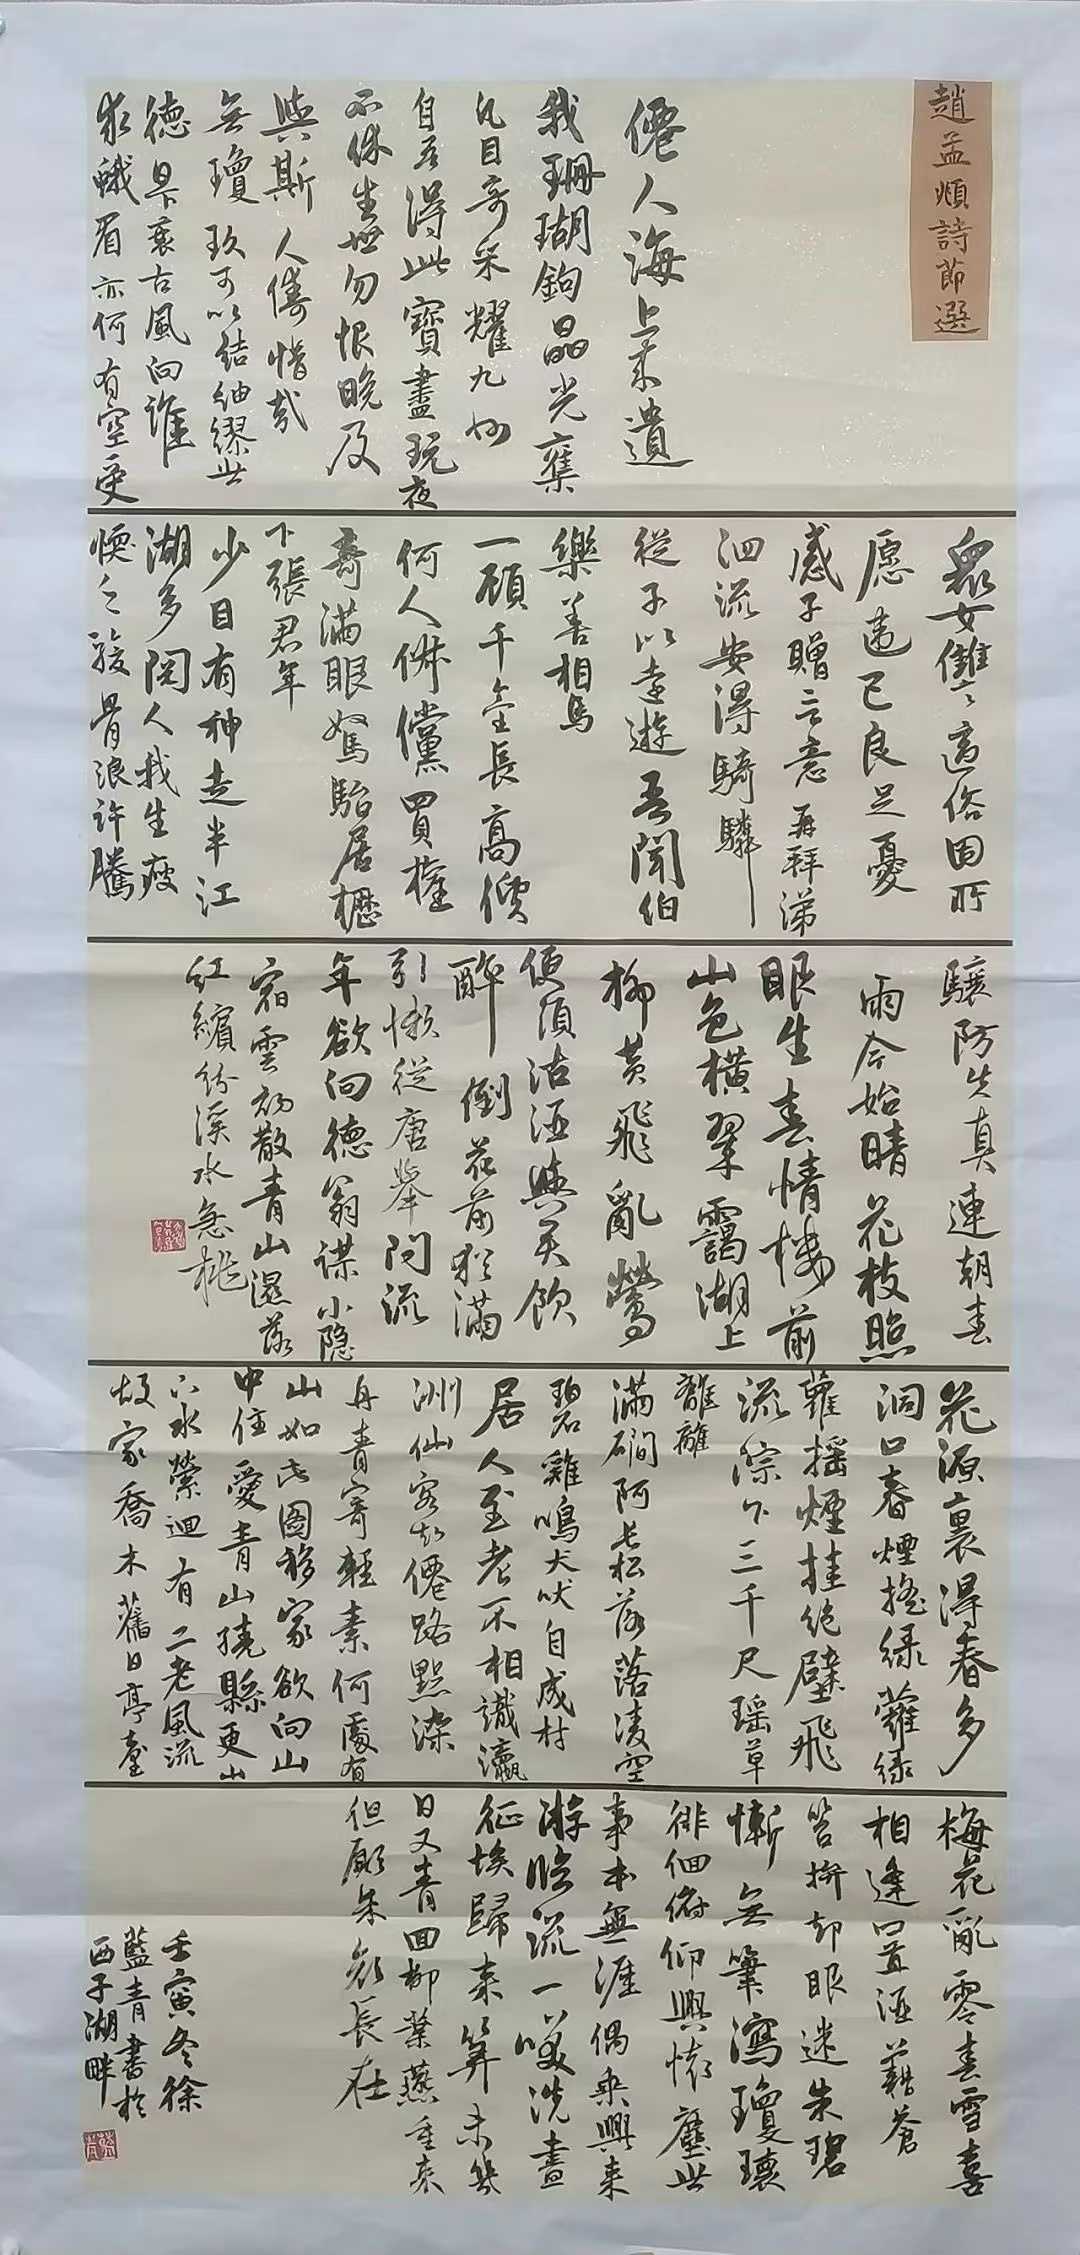 趙孟頫詩節選
僊人海上來遺
我珊瑚鉤晶光奪
凡目奇采耀九州
自吾得此寶晝玩夜
不休生世勿恨晚及
與斯人儔惜哉
無瓊玖可以結綢繆此
德日下衰古風向誰
求蛾眉亦何有空受
眾女讎讎適俗固所
愿違己良足憂
感子贈言意再拜涕
泗流安得騎麟
從子以遠遊吾聞伯
樂善相馬
一顧千金長高價
何人倜儻買權
奇滿眼駑駘居櫪
下張君年
少目有神走半江
湖多閱人我生瘦
愞之駿骨浪許騰
驤防失真連朝春
雨今始晴花枝照
眼生春情樓前
山色橫翠靄湖上
柳黃飛亂鶯
便須沽酒與君飲
醉倒花前猶滿
引懶從唐舉問流
年欲向德翁謀小隐
宿雲初散青山濕落
紅繽紛溪水急桃
花源裏得春多
洞口春煙搖綠蘿綠
蘿搖煙挂絕壁飛
流淙下三千尺瑶草
離離
滿磵阿長松落落凌空
碧雞鳴犬吠自成村
居人至老不相識瀛
洲仙客知僊路點染
丹青寄輕素何處有
山如此圖移家欲向山
中住愛青山繞縣更山
下水縈迴有二老風流
故家喬木舊日亭臺
梅花亂零春雪喜
相逢置酒藉蒼
苔拚却眼迷朱碧
慚無筆瀉瓊瓌
徘徊俯仰興懷塵世
事本無涯偶乘興來
游臨流一笑洗盡
征埃歸來算未幾
日又青回柳葉燕重來
但願朱顏長在
壬寅冬徐
藍青書於
西子湖畔